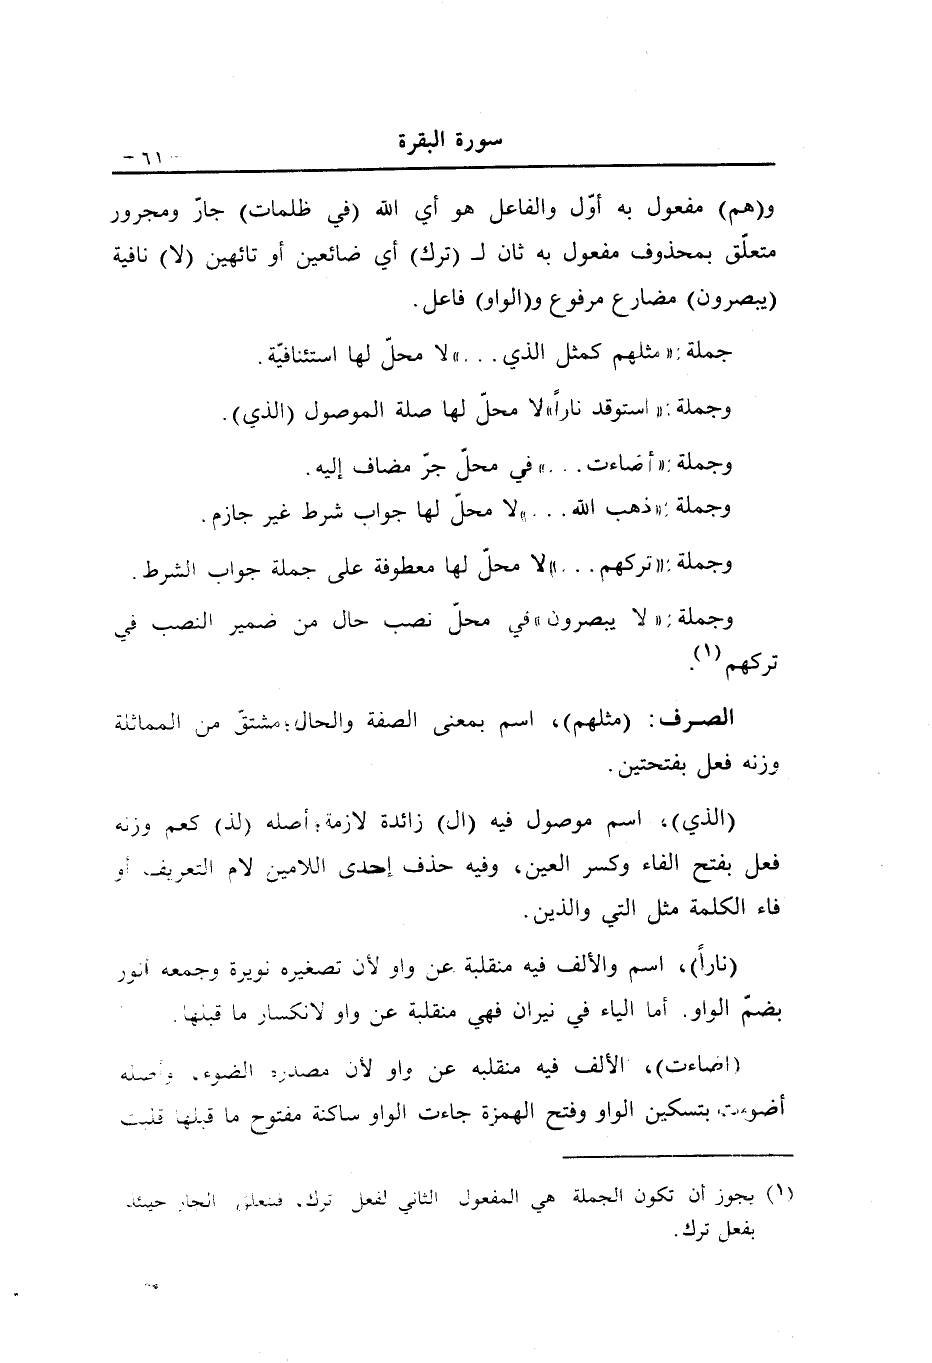 سورة البقرة
٦١ –
و(هم) مفعول به أوّل والفاعل هو أي الله (في ظلمات) جارّ ومجرور
متعلّق بمحذوف مفعول به ثان لـ (ترك) أي ضائعين أو تائهين (لا) نافية
(يبصرون) مضارع مرفوع و(الواو) فاعل.
جملة: «مثلهم كمثل الذي...» لا محلّ لها استئنافيّة.
وجملة: «استوقد ناراً» لا محلّ لها صلة الموصول (الذي).
وجملة: «أضاءت...» في محلّ جرّ مضاف إليه.
وجملة: «ذهب الله...» لا محلّ لها جواب شرط غير جازم.
وجملة: «تركهم...» لا محلّ لها معطوفة على جملة جواب الشرط.
وجملة: «لا يبصرون» في محلّ نصب حال من ضمير النصب في
تركهم(١).
الصرف: (مثلهم)، اسم بمعنى الصفة والحال؛ مشتقّ من المماثلة
وزنه فعل بفتحتين.
(الذي)، اسم موصول فيه (ال) زائدة لازمة؛ أصله (لذ) كعم وزنه
فعل بفتح الفاء وكسر العين، وفيه حذف إحدى اللامين لام التعريف أو
فاء الكلمة مثل التي والذين.
(ناراً)، اسم والألف فيه منقلبة عن واو لأن تصغيره نويرة وجمعه أنور
بضمّ الواو. أما الياء في نيران فهي منقلبة عن واو لانكسار ما قبلها.
(اضاءت)، الألف فيه منقلبه عن واو لأن مصدره الضوء. وأصله
أضوءت بتسكين الواو وفتح الهمزة جاءت الواو ساكنة مفتوح ما قبلها قلبت
(١) يجوز أن تكون الجملة هي المفعول الثاني لفعل ترك. فيتعلق الجار حينئذ
بفعل ترك.